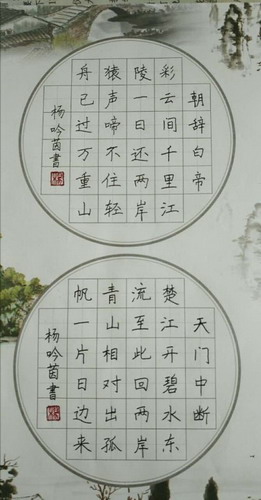 朝辞白帝
彩云间千里江
陵一日还两岸
猿声啼不住轻
舟已过万重山
杨吟茵書
天门中断
楚江开碧水东
流至此回两岸
青山相对出孤
帆一片日边来
杨吟茵書